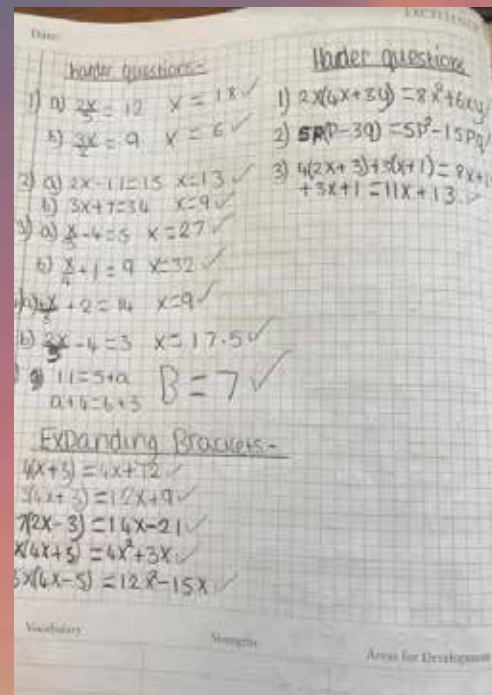 EXCELLENCE
Date:
harder questions-
1) a) 2x/3 = 12 x = 18 ✓
b) 3x/2 = 9 x = 6 ✓
2) a) 2x-11=15 x=13 ✓
b) 3x+7=34 x=9 ✓
3) a) x/3-4=5 x=27 ✓
b) x/4+1=9 x=32 ✓
a) 4x/3+2=14 x=9 ✓
b) 2x/5-4=3 x=17.5 ✓
11=5+a
a+4=b+3 B=7 ✓
Expanding Brackets-
4(x+3)=4x+12 ✓
3(4x+3)=12x+9 ✓
7(2x-3)=14x-21 ✓
x(4x+3)=4x²+3x ✓
3x(4x-5)=12x²-15x ✓
Harder questions
1) 2x(4x+3y)=8x²+6xy
2) 5P(P-3q)=5P²-15Pq
3) 4(2x+3)+3(x+1)=8x+1
+3x+1=11x+13
Vocabulary
Strengths
Areas for Development